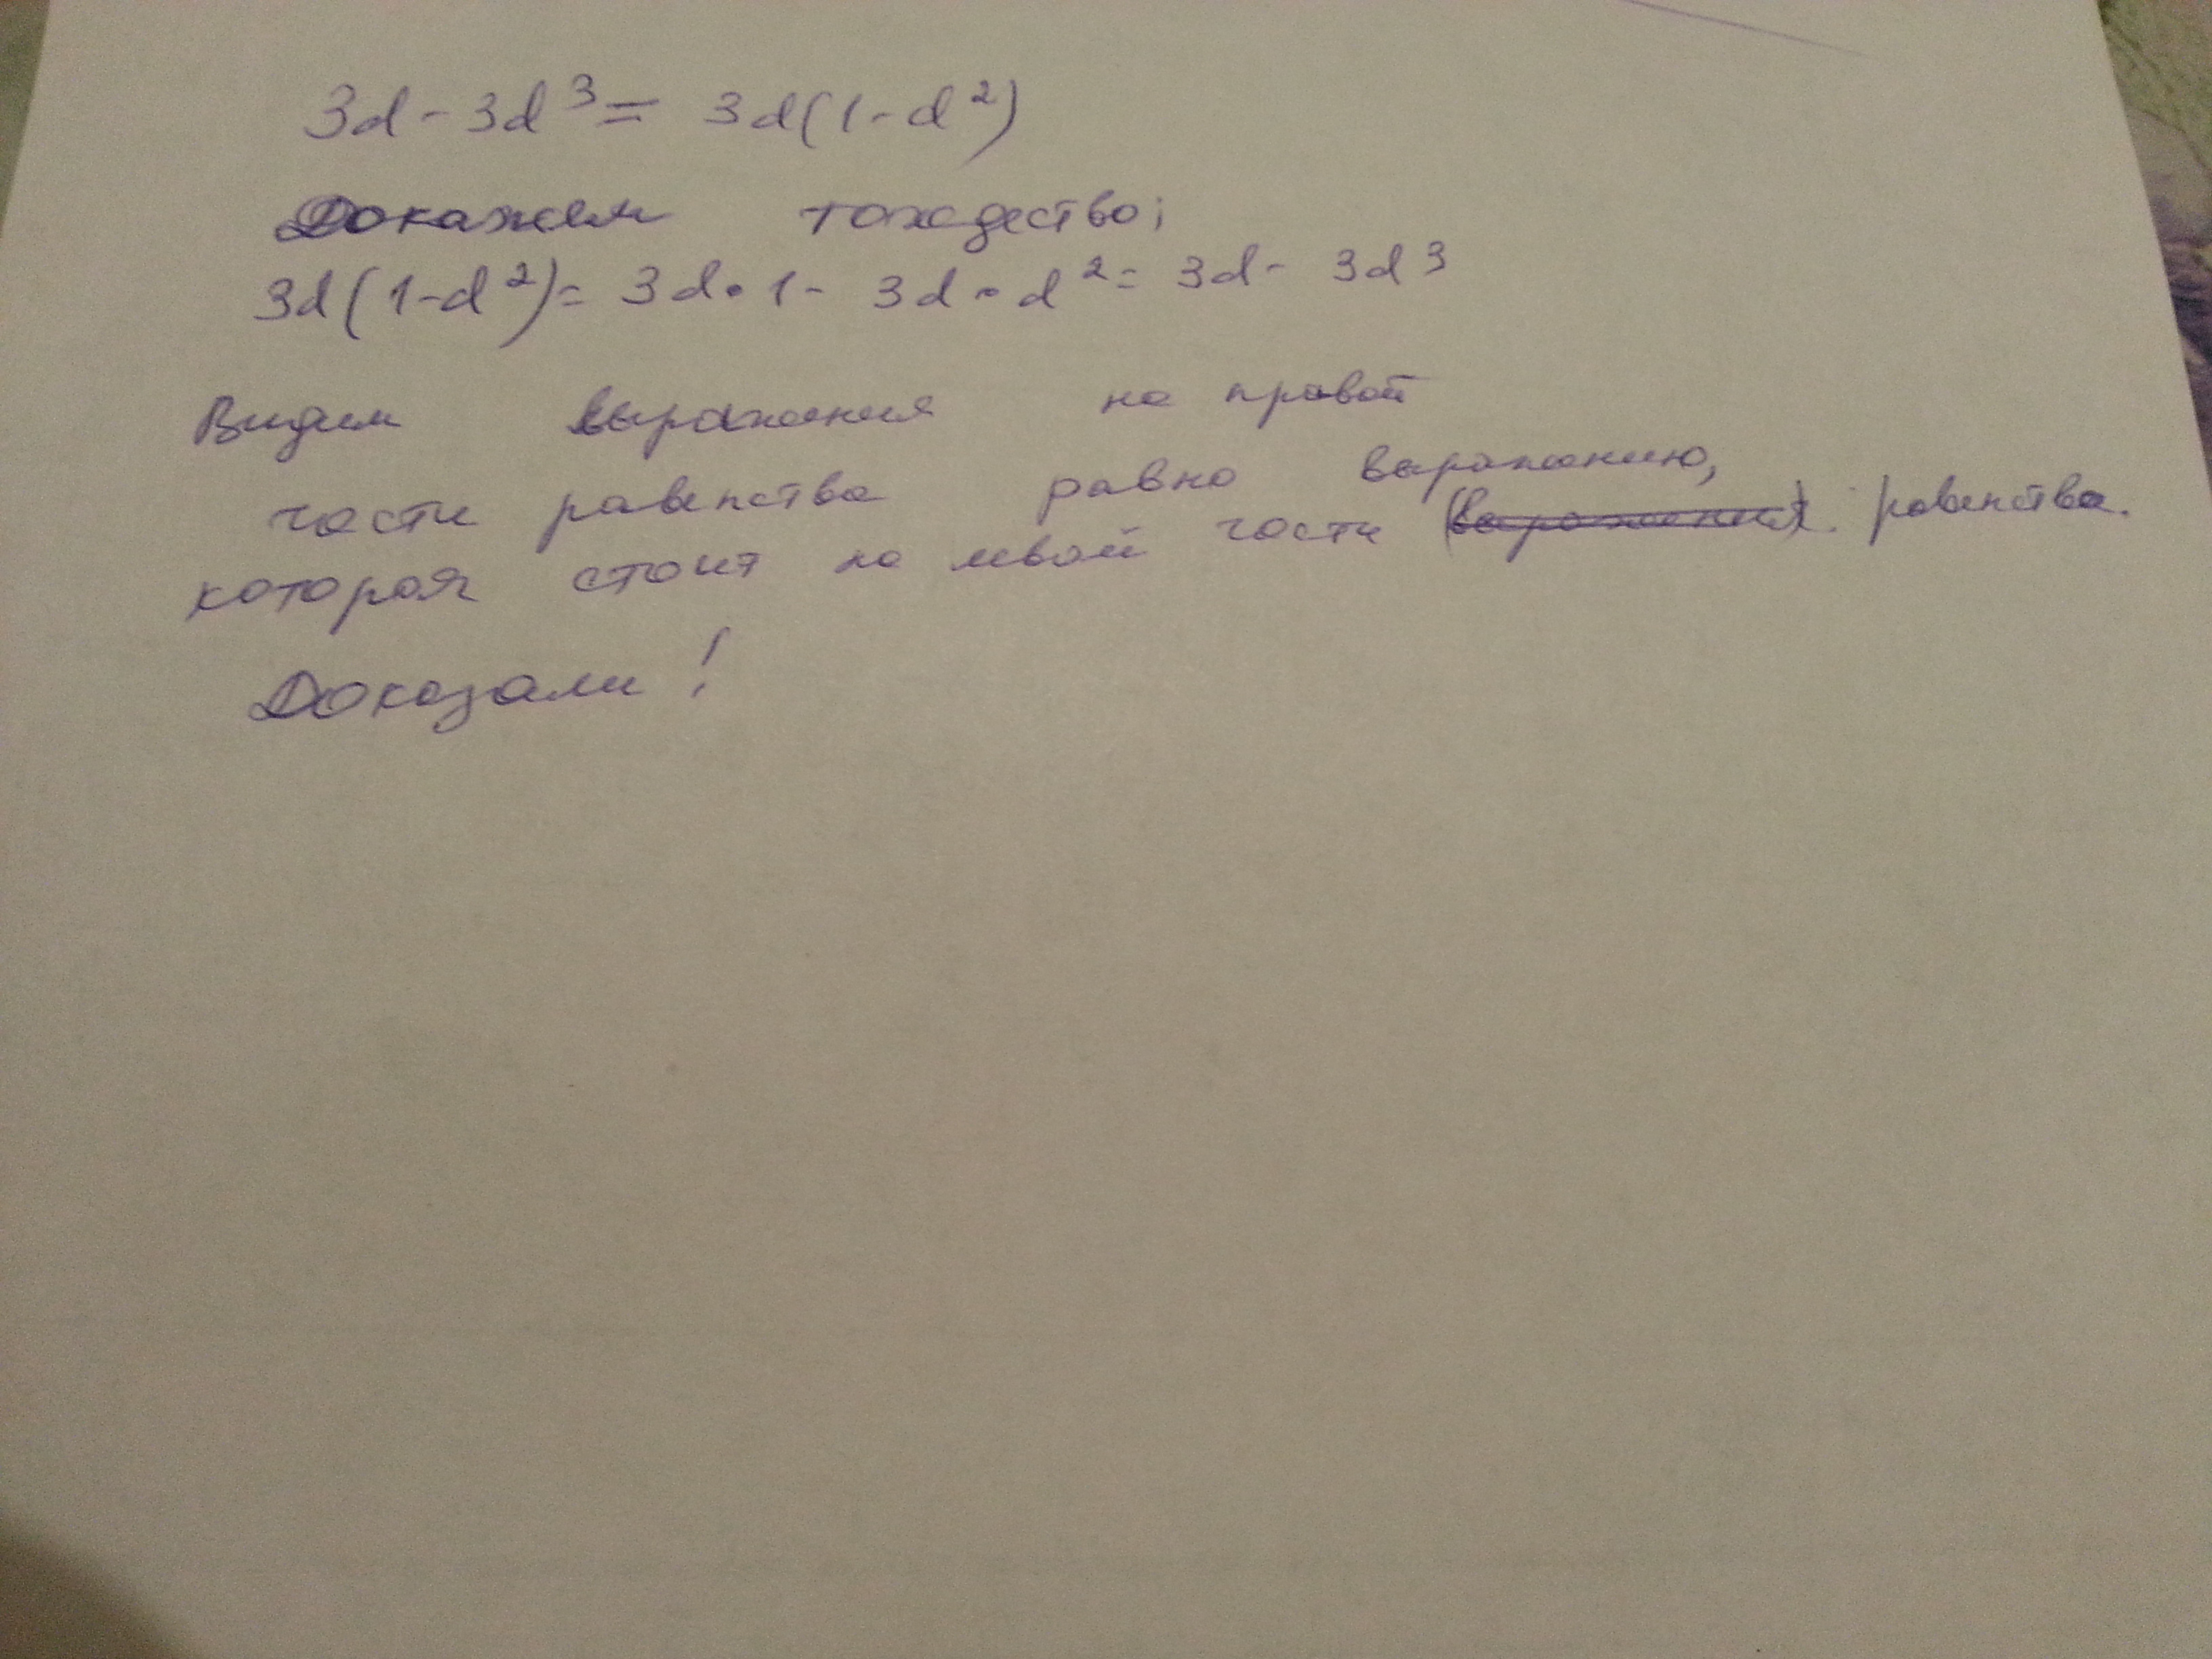 3d - 3d³ = 3d(1 - d²)
Докажем тождество;
3d(1-d²) = 3d • 1 - 3d • d² = 3d - 3d³
Видим выражения на правой
части равенства равно выражению,
которая стоит на левой части (выражения). равенства.
Доказали!